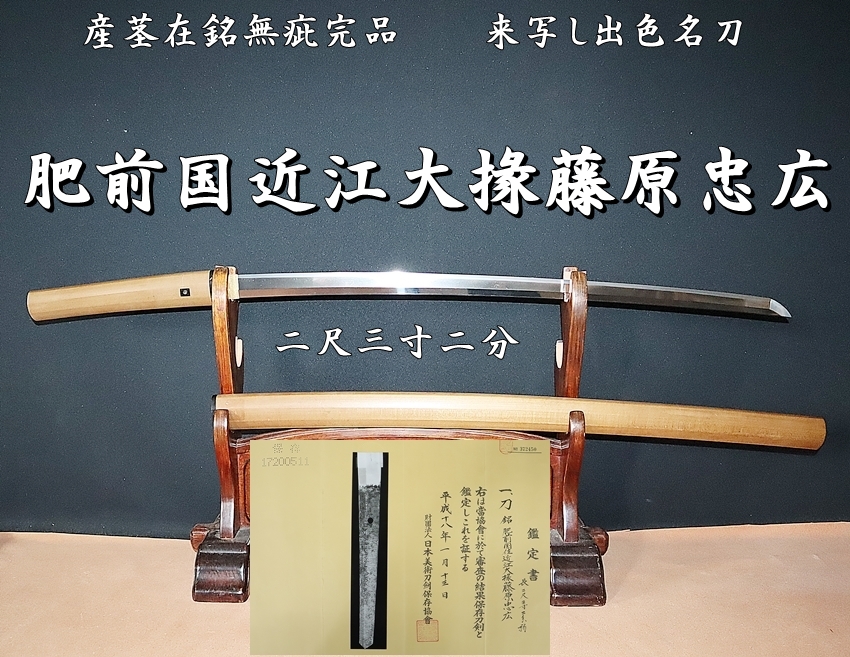 産茎在銘無疵完品　来写し出色名刀
肥前国近江大掾藤原忠広
二尺三寸二分
保存
17200511
鑑定書
一、刀 銘 肥前国住近江大掾藤原忠広
右は當協會に於て審査の結果保存刀剣と
鑑定しこれを証する
平成十八年一月十三日
財団法人 日本美術刀剣保存協會